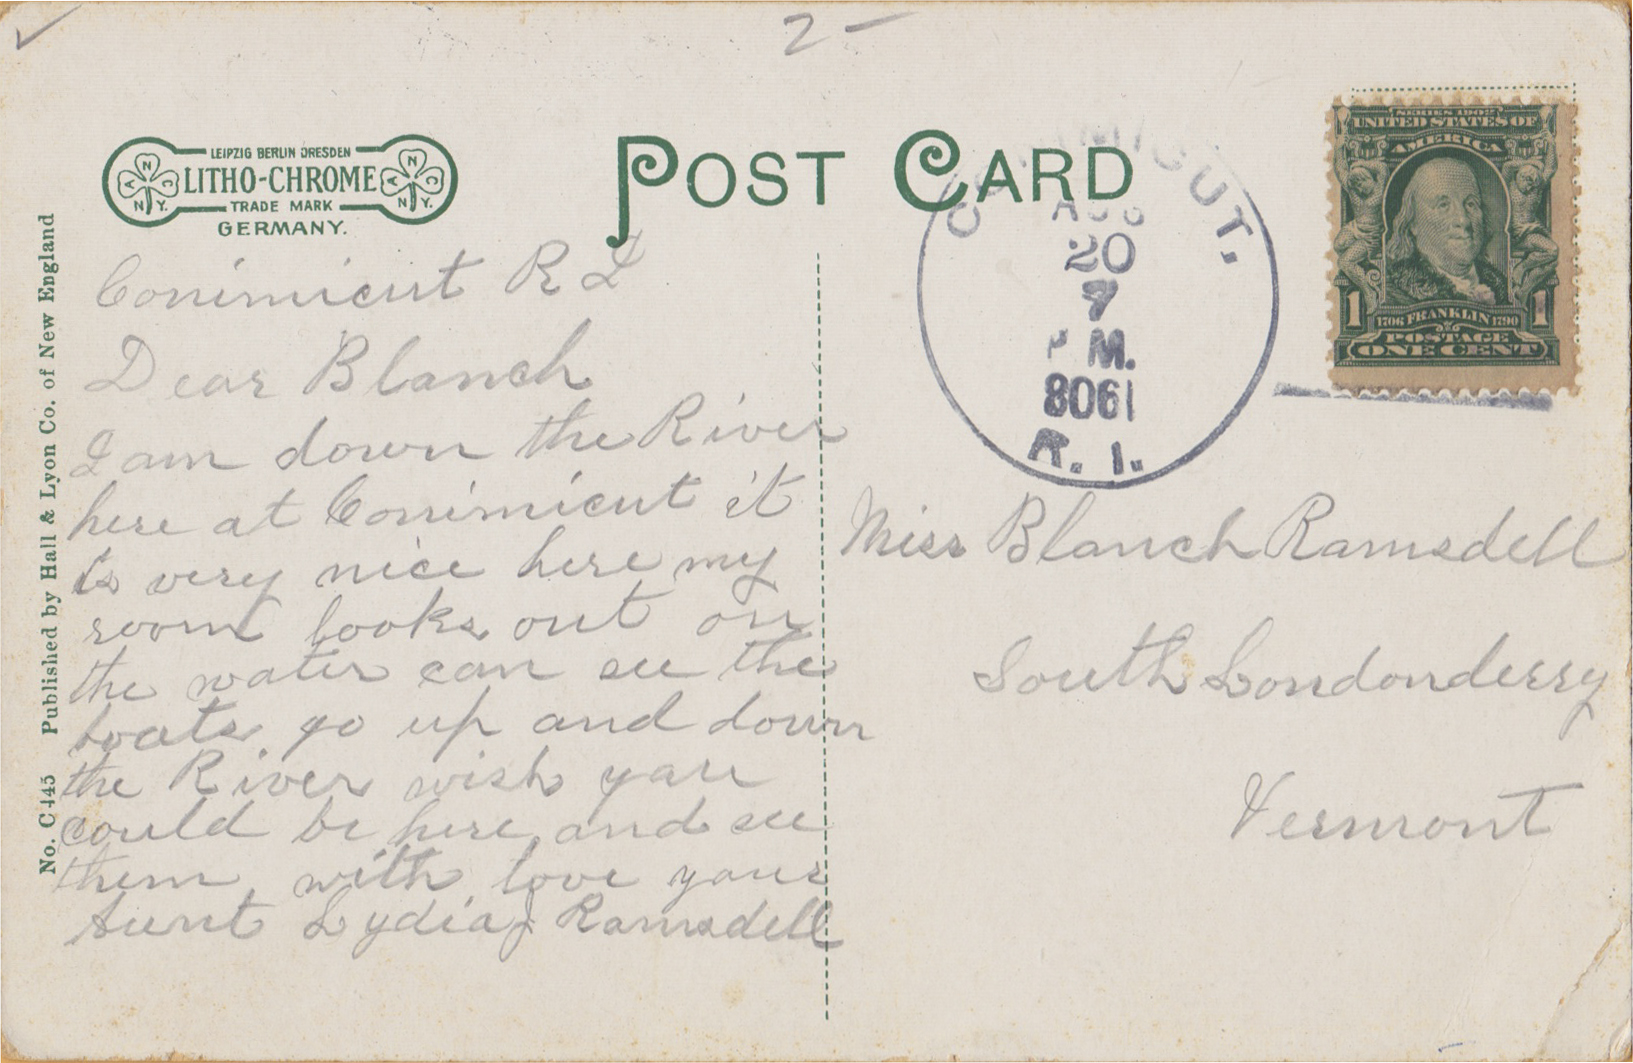 2 -
LEIPZIG BERLIN DRESDEN
LITHO-CHROME
TRADE MARK
GERMANY.
N
A C
N.Y.
N
A C
N.Y.
POST CARD
No. C 145 Published by Hall & Lyon Co. of New England
Conimicut R I
Dear Blanch
I am down the River
here at Conimicut it
is very nice here my
room looks out on
the water can see the
boats go up and down
the River wish you
could be here and see
them with love your
Aunt Lydia J Ramsdell
CONIMICUT.
AUG
20
7
P M.
8061
R. I.
SERIES 1902
UNITED STATES OF
AMERICA
1 1
1706 FRANKLIN 1790
POSTAGE
ONE CENT
Miss Blanch Ramsdell
South Londonderry
Vermont